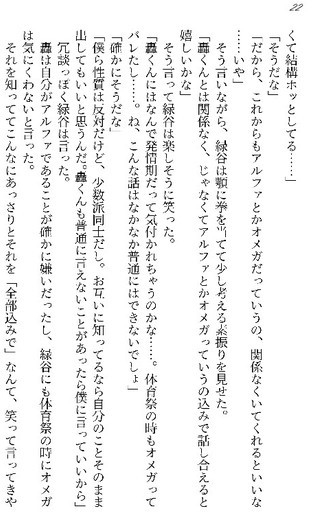 22
くて結構ホッとしてる……」
「そうだな」
「だから、これからもアルファとかオメガだっていうの、関係なくいてくれるといいな
……いや」
そう言いながら、緑谷は顎に拳を当てて少し考える素振りを見せた。
「轟くんとは関係なく、じゃなくてアルファとかオメガっていうの込みで話し合えると
嬉しいかな」
そう言って緑谷は楽しそうに笑った。
「轟くんにはなんで発情期だって気付かれちゃうのかな……。体育祭の時もオメガって
バレたし……。ね、こんな話はなかなか普通にはできないでしょ」
「確かにそうだな」
「僕ら性質は反対だけど、少数派同士だし。お互いに知ってるなら自分のことそのまま
出してもいいと思うんだ。轟くんも普通に言えないことがあったら僕に言っていいから」
冗談っぽく緑谷は言った。
轟は自分がアルファであることが確かに嫌いだったし、緑谷にも体育祭の時にオメガ
は気にくわないと言った。
それを知っててこんなにあっさりとそれを「全部込みで」なんて、笑って言ってきや